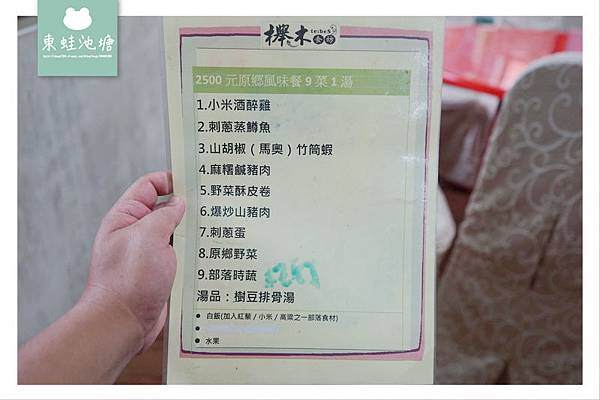 東蛙池塘
櫸木
te:beS
食坊
2500 元原鄉風味餐 9 菜 1 湯
1.小米酒醉雞
2.刺蔥蒸鱒魚
3.山胡椒（馬奧）竹筒蝦
4.麻糬鹹豬肉
5.野菜酥皮卷
6.爆炒山豬肉
7.刺蔥蛋
8.原鄉野菜
9.部落時蔬
湯品：樹豆排骨湯
● 白飯(加入紅藜 / 小米 / 高粱之一部落食材)
● 水果